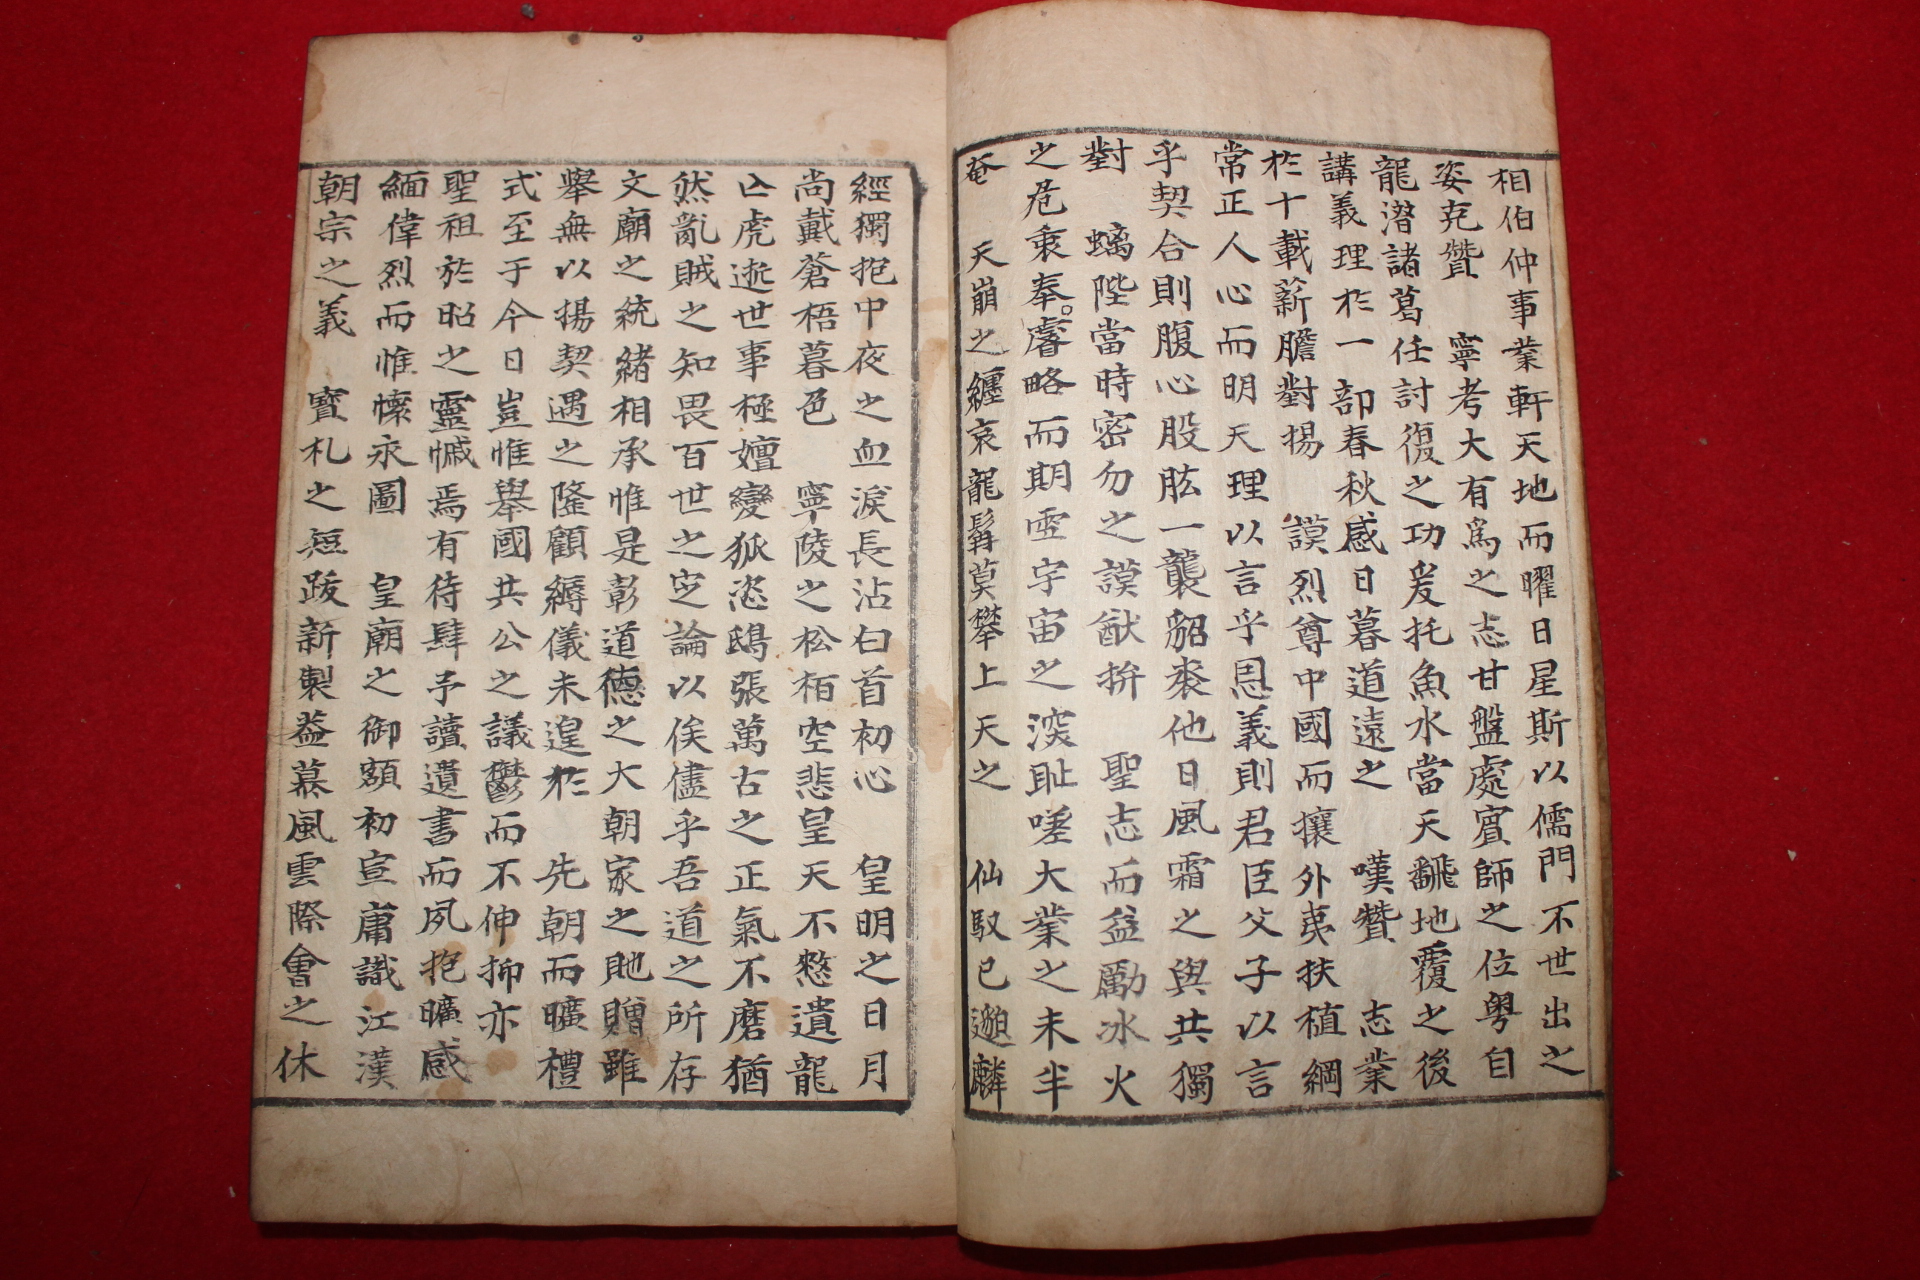 相伯仲事業軒天地而曜日星斯以儒門不世出之
姿克贊 寧考大有爲之志甘盤處賓師之位粤自
龍潛諸葛任討復之功爰托魚水當天飜地覆之後
講義理於一部春秋感日暮道遠之 嘆贊 志業
於十載薪膽對揚 謨烈尊中國而攘外夷扶植綱
常正人心而明天理以言乎恩義則君臣父子以言
乎契合則腹心股肱一襲貂裘他日風霜之與共獨
對 螭陛當時密勿之謨猷拚 聖志而益勵冰火
之危秉奉睿略而期雪宇宙之深耻嗟大業之未半
奄 天崩之纏哀龍髯莫攀上天之 仙馭已邈麟
經獨抱中夜之血淚長沾白首初心 皇明之日月
尚戴蒼梧暮色 寧陵之松栢空悲皇天不憗遺龍
亡虎逝世事極嬗變狐恣鴟張萬古之正氣不磨猶
然亂賊之知畏百世之定論以俟儘乎吾道之所存
文廟之統緒相承惟是彰道德之大朝家之貤贈雖
擧無以揚契遇之隆顧縟儀未遑於 先朝而曠禮
式至于今日豈惟擧國共公之議鬱而不伸抑亦
聖祖於昭之靈慽焉有待肆予讀遺書而夙抱曠感
緬偉烈而惟懷永圖 皇廟之御額初宣庸識江漢
朝宗之義 寶札之短跋新製益慕風雲際會之休